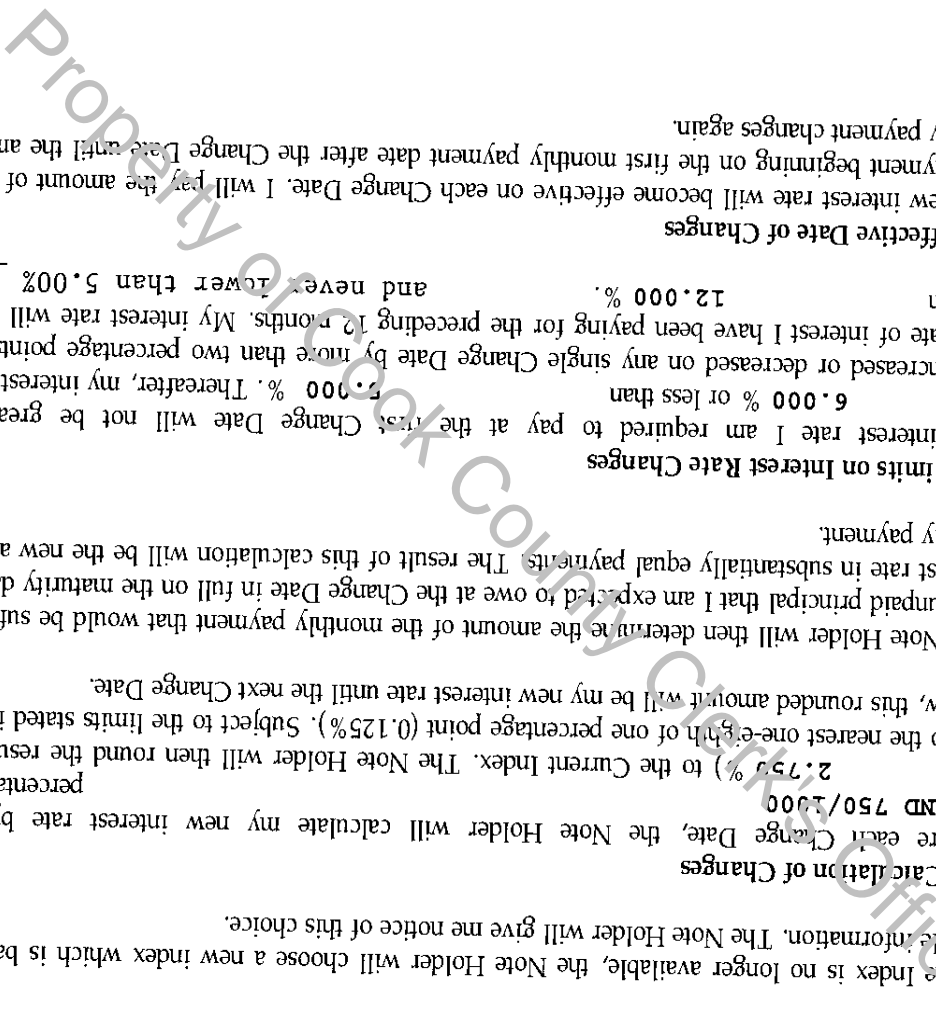 e Index is no longer available, the Note Holder will choose a new index which is ba
le information. The Note Holder will give me notice of this choice.
Calculation of Changes
re each Change Date, the Note Holder will calculate my new interest rate b
ND 750/1000 percenta
2.750 %) to the Current Index. The Note Holder will then round the resu
o the nearest one-eighth of one percentage point (0.125%). Subject to the limits stated i
w, this rounded amount will be my new interest rate until the next Change Date.
Note Holder will then determine the amount of the monthly payment that would be suf
unpaid principal that I am expected to owe at the Change Date in full on the maturity d
st rate in substantially equal payments. The result of this calculation will be the new a
ly payment.
imits on Interest Rate Changes
interest rate I am required to pay at the first Change Date will not be grea
6.000 % or less than 5.000 %. Thereafter, my interest
ncreased or decreased on any single Change Date by more than two percentage point
ate of interest I have been paying for the preceding 12 months. My interest rate will
n 12.000 %. and never lower than 5.00%
ffective Date of Changes
ew interest rate will become effective on each Change Date. I will pay the amount of
yment beginning on the first monthly payment date after the Change Date until the am
y payment changes again.
Property of Cook County Clerk's Offic